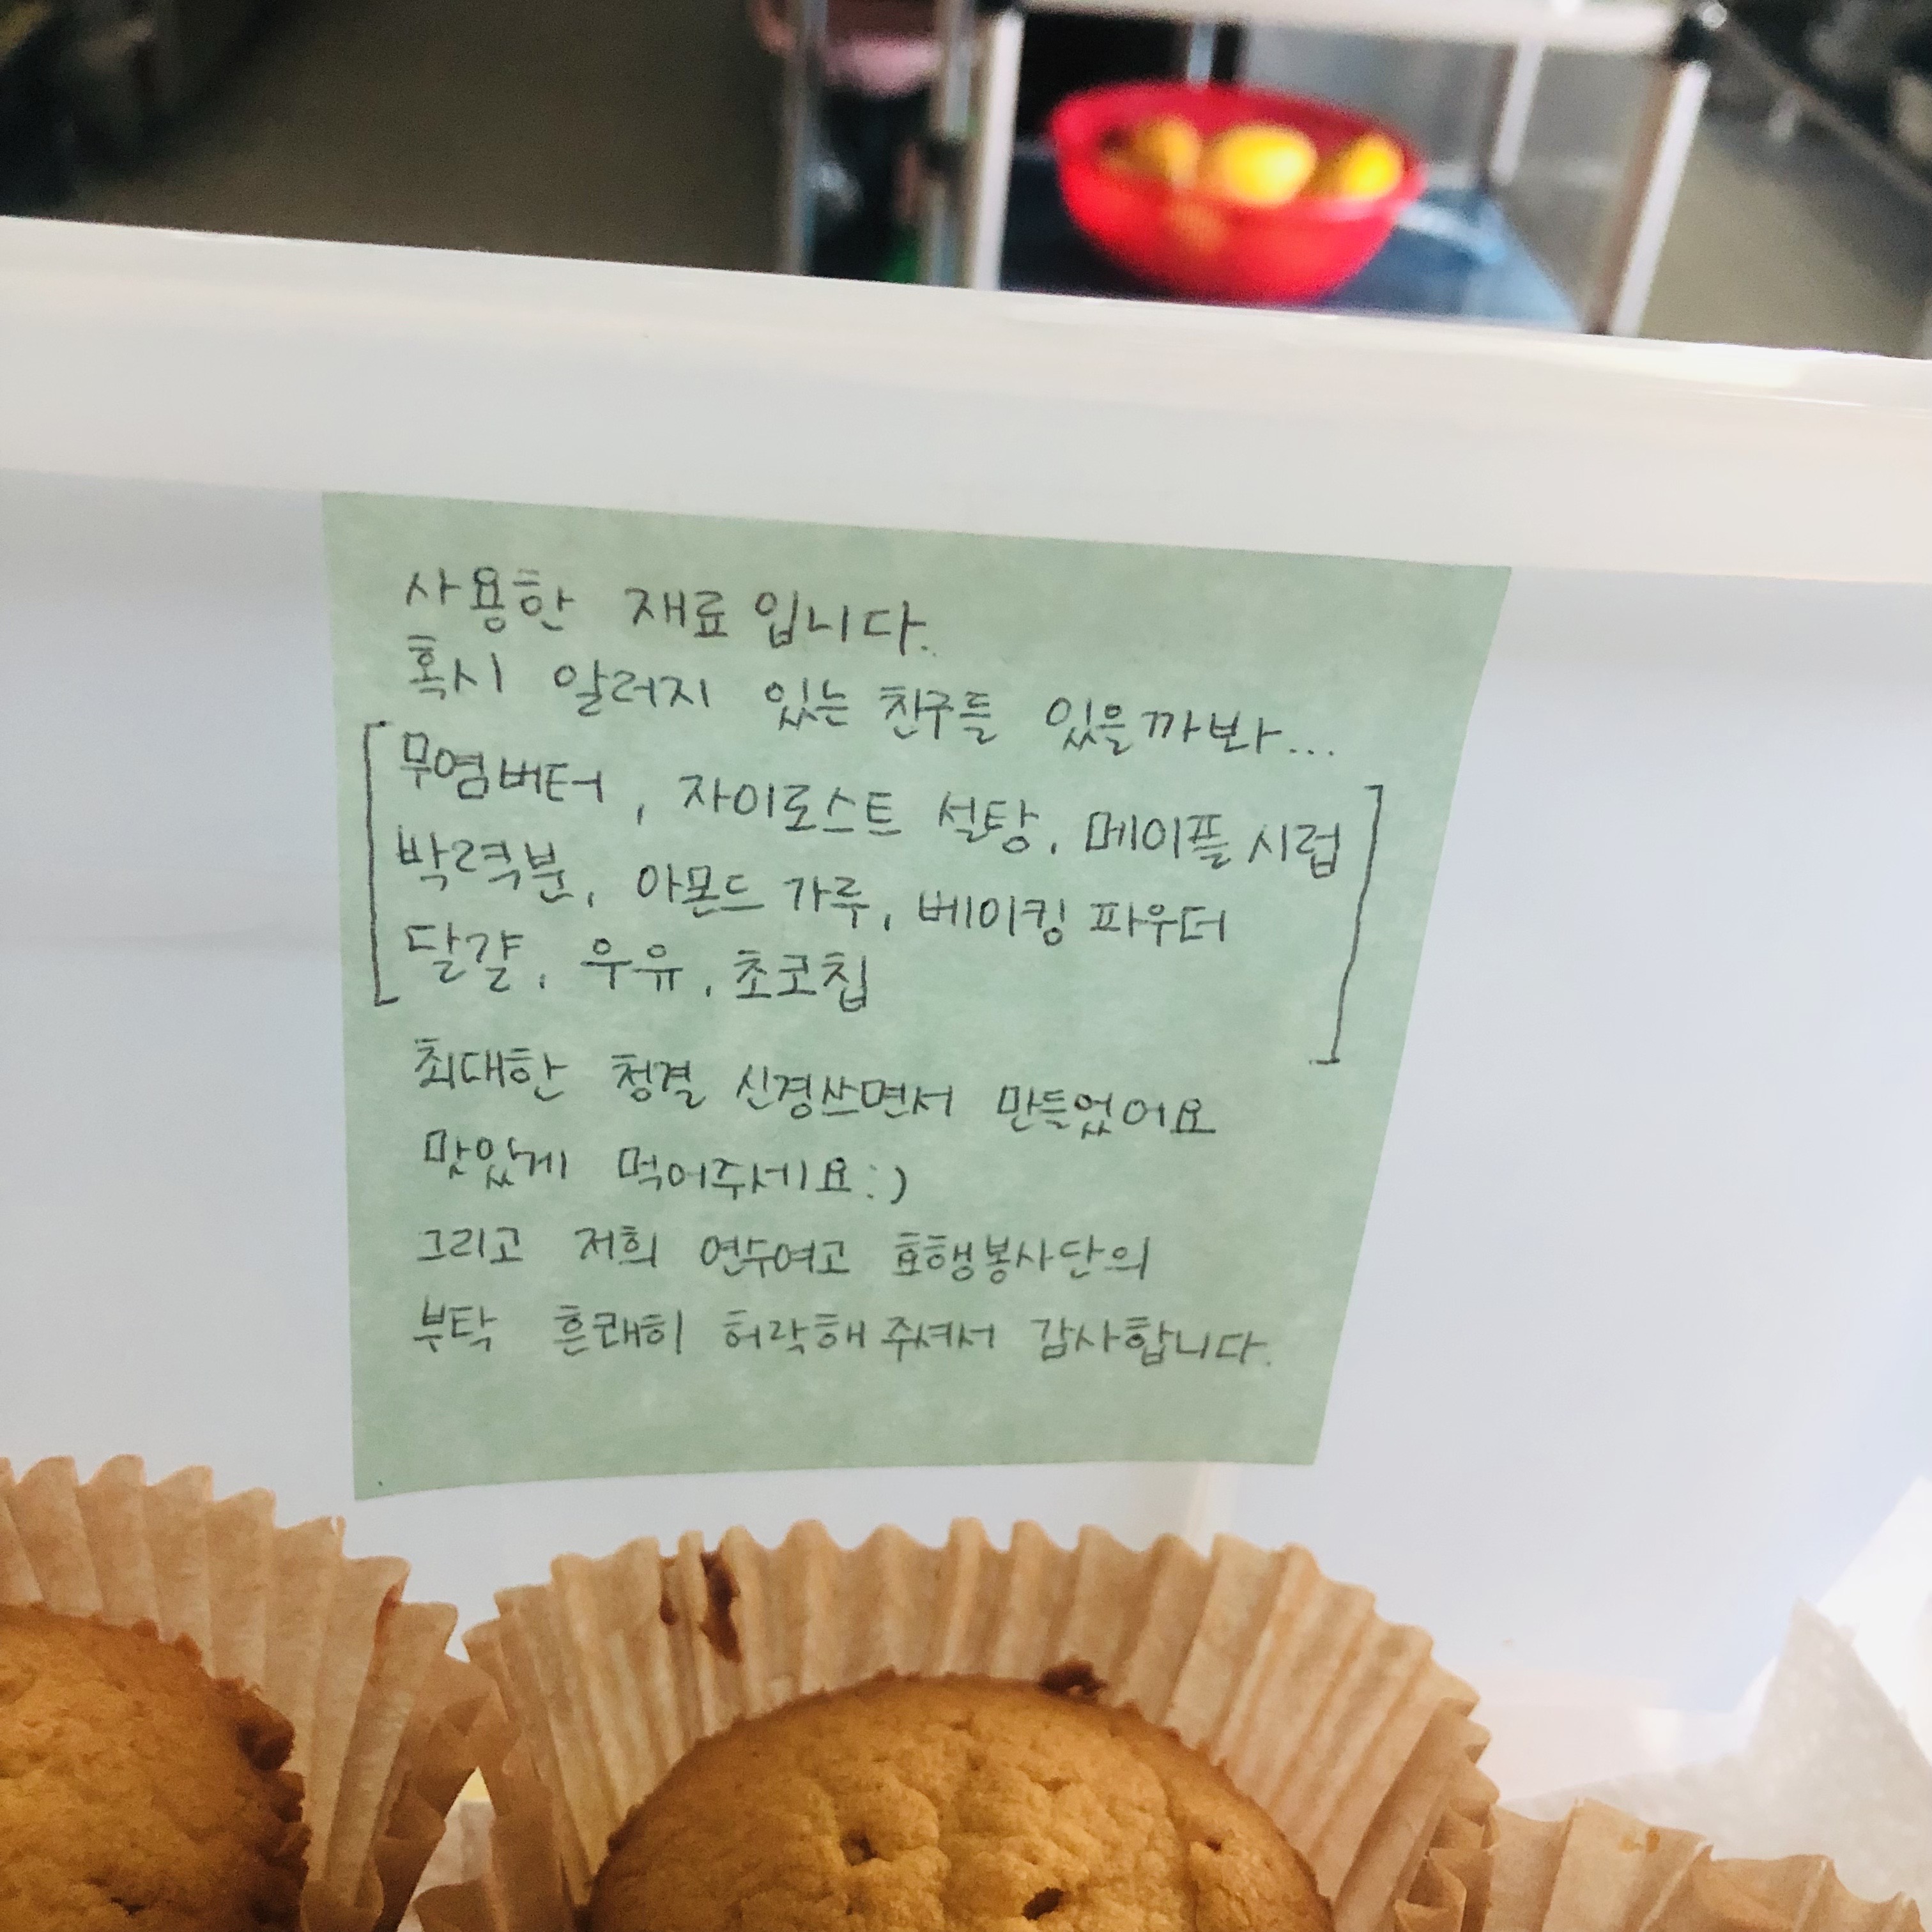 사용한 재료 입니다.
혹시 알러지 있는 친구들 있을까봐...
무염버터, 자이로스트 설탕, 메이플 시럽
박력분, 아몬드 가루, 베이킹 파우더
달걀, 우유, 초코칩
최대한 청결 신경쓰면서 만들었어요
맛있게 먹어주세요:)
그리고 저희 연수여고 효행봉사단의
부탁 흔쾌히 허락해 주셔서 감사합니다.